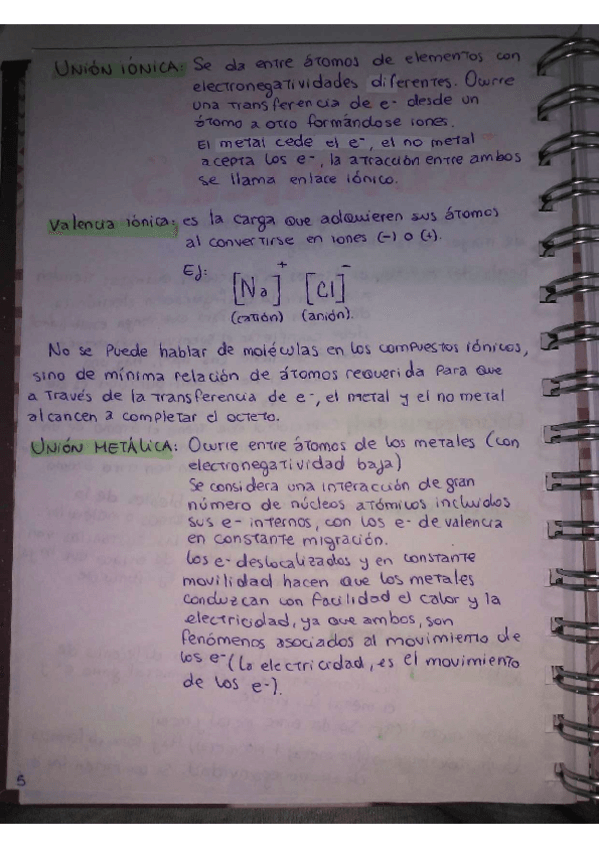 UNIÓN IÓNICA: Se da entre átomos de elementos con
electronegatividades diferentes. Ocurre
una transferencia de e- desde un
átomo a otro formándose iones.
El metal cede el e-, el no metal
acepta los e-, la atracción entre ambos
se llama enlace iónico.
Valencia iónica: es la carga que adquieren sus átomos
al convertirse en iones (-) o (+).
Ej: [Na]+ [Cl]-
(catión) (anión).
No se puede hablar de moléculas en los compuestos iónicos,
sino de mínima relación de átomos requerida para que
a través de la transferencia de e-, el metal y el no metal
alcancen a completar el octeto.
UNIÓN METÁLICA: Ocurre entre átomos de los metales (con
electronegatividad baja)
Se considera una interacción de gran
número de núcleos atómicos incluidos
sus e- internos, con los e- de valencia
en constante migración.
Los e- deslocalizados y en constante
movilidad hacen que los metales
conduzcan con facilidad el calor y la
electricidad, ya que ambos, son
fenómenos asociados al movimiento de
los e- (la electricidad, es el movimiento
de los e-).
5